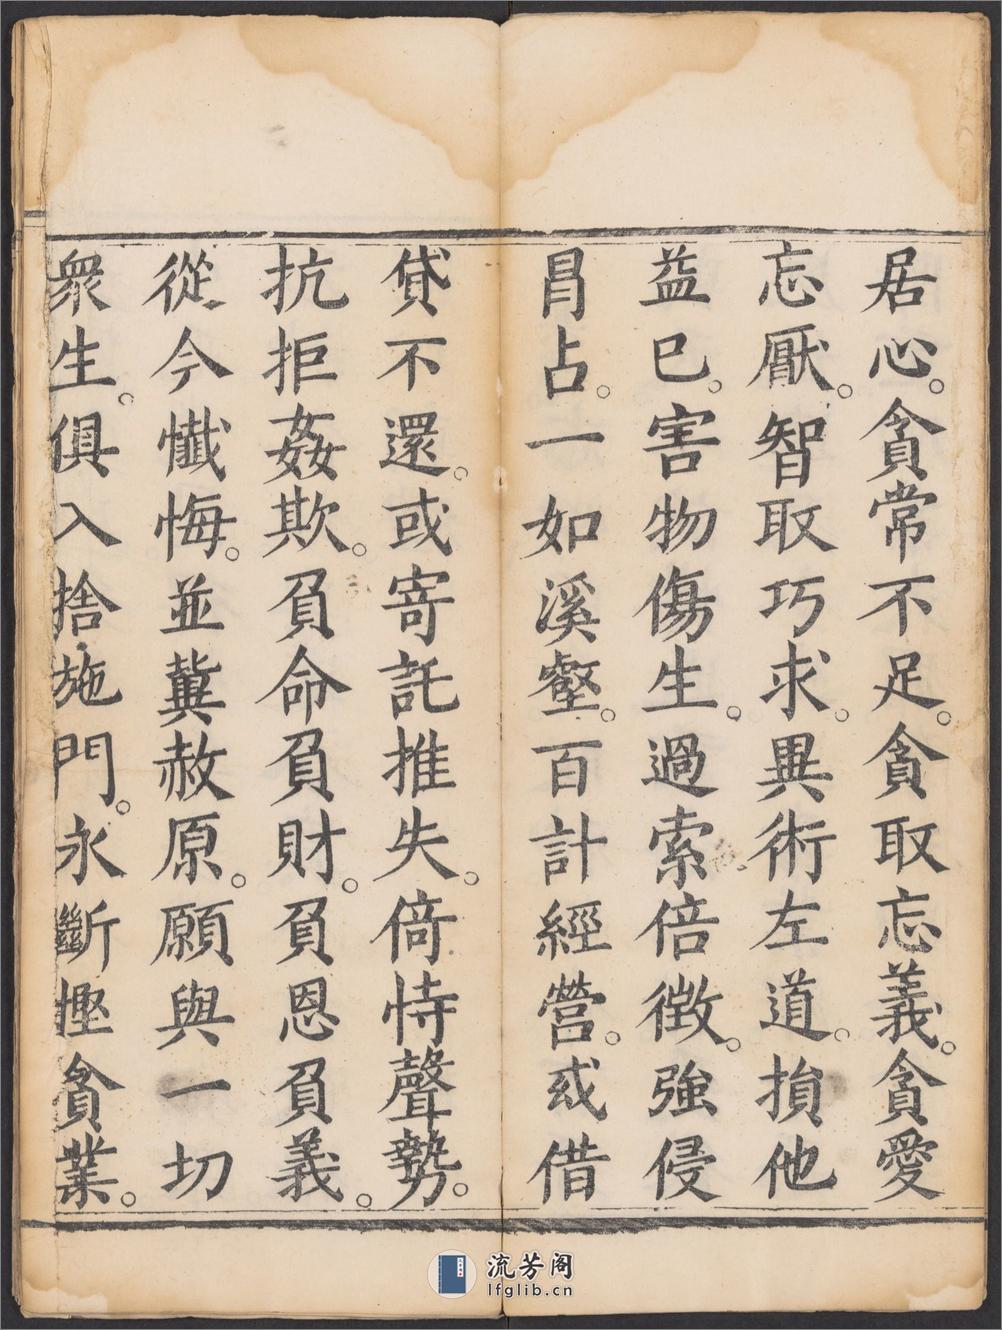 居心。貪常不足。貪取忘義。貪愛
忘厭。智取巧求。異術左道。損他
益已。害物傷生。過索倍徵。強侵
冐占。一如溪壑。百計經營。或借
貸不還。或寄託推失。倚恃聲勢。
抗拒姦欺。負命負財。負恩負義。
從今懺悔。並冀赦原。願與一切
衆生。俱入捨施門。永斷慳貪業。
流芳阁
lfglib.cn